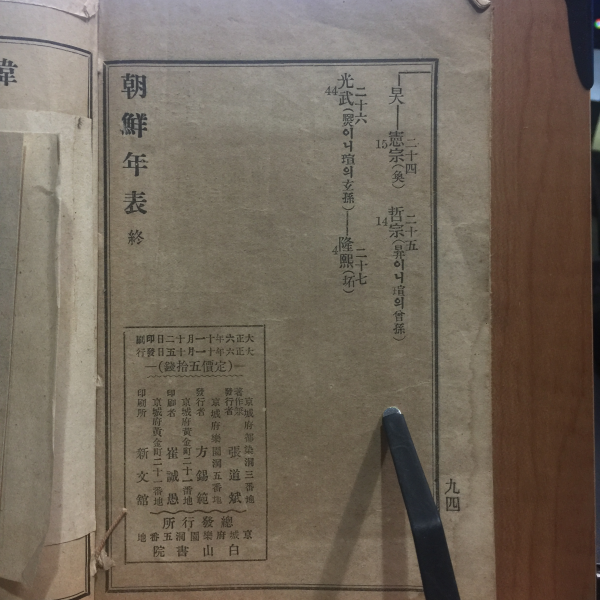 昊——憲宗(奐) 哲宗(昪이니瑄의曾孫)
二十四 二十五
15 14
二十六 二十七
光武(㷩이니瑄의玄孫)——隆熙(坧)
44 4
朝鮮年表 終
大正六年十一月十二日印刷
大正六年十一月十五日發行
(定價五拾錢)
京城府都染洞三番地
著作兼發行者 張道斌
京城府樂園洞五番地
發行者 方錫範
京城府黃金町二十一番地
印刷者 崔誠愚
京城府黃金町二十一番地
印刷所 新文館
總發行所
京城府樂園洞五番地
白山書院
九四
諱